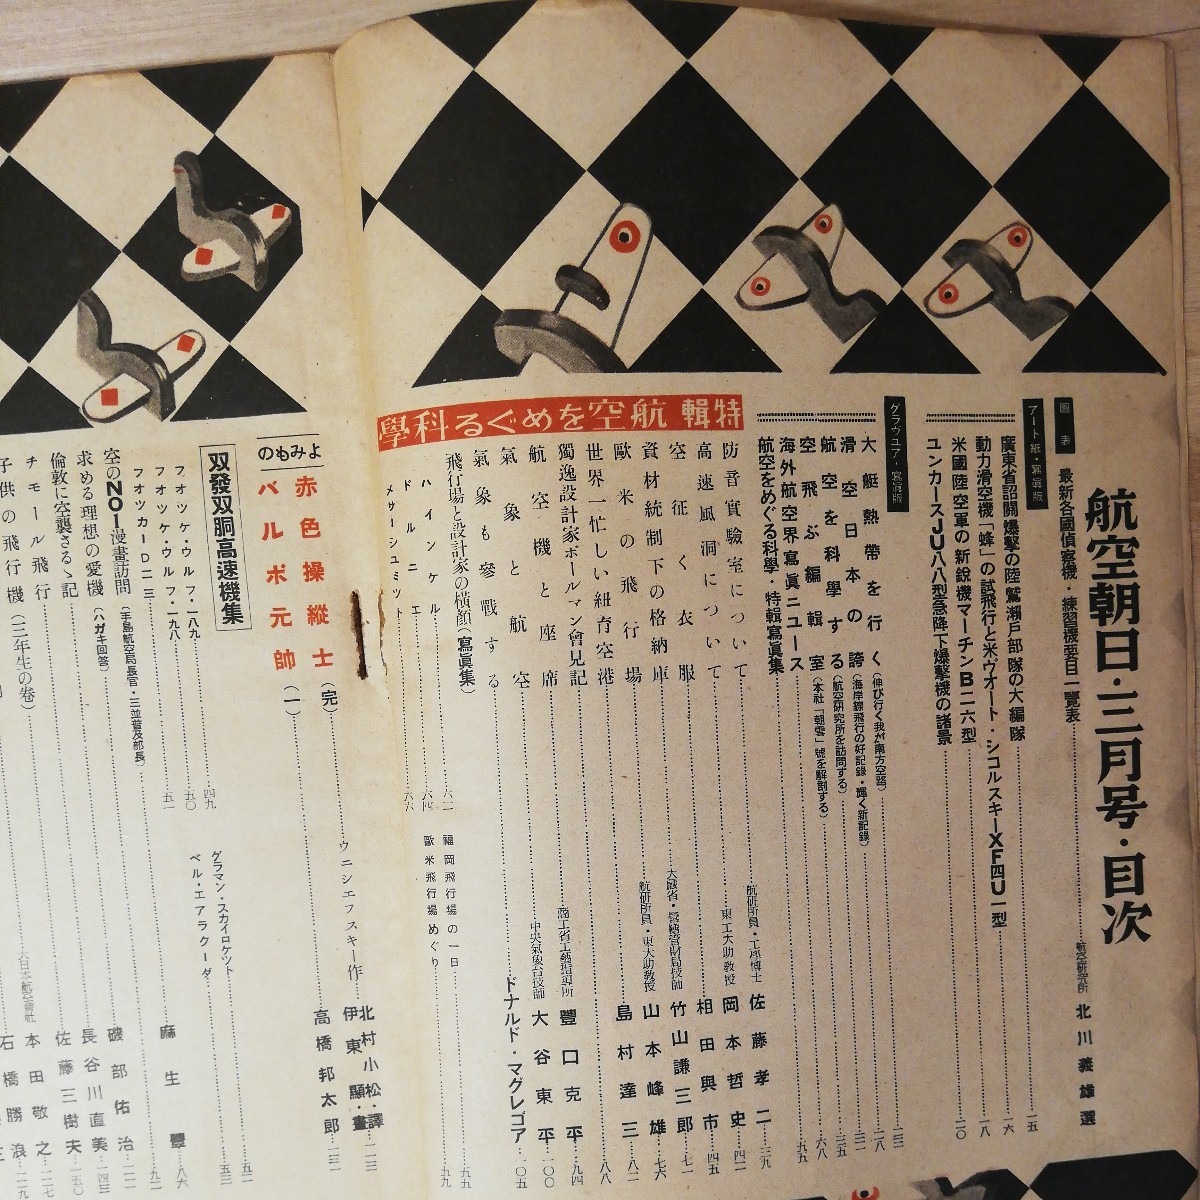 航空朝日・三月号・目次
圖表
最新各國偵察機・練習機要目一覽表
航空研究所 北川義雄選
アート紙・寫眞版
廣東省韶關爆擊の陸鷲瀨戸部隊の大編隊 一五
動力滑空機「蜂」の試飛行と米ヴオート・シコルスキーXF四U一型 一六
米國陸空軍の新銳機マーチンB二六型 一八
ユンカースJU八八型急降下爆擊機の諸景 二〇
グラヴユア・寫眞版
大艇熱帶を行く(伸び行く我が南方空路)
滑空日本の誇(海岸線飛行の好記錄・輝く新記錄)
航空を科學する(航空研究所を訪問する)
空飛ぶ編輯室(本社「朝雲」號を解剖する)
海外航空界寫眞ニユース
航空をめぐる科學・特輯寫眞集
特輯 航空をめぐる科學
防音實驗室について 航研所員・工學博士 佐藤孝二 三九
高速風洞について 東工大助教授 岡本哲史 四二
空征く衣服 相田興市 四五
資材統制下の格納庫 大藏省・營繕管財局技師 竹山謙三郎 七一
歐米の飛行場 航研所員・東大助教授 山本峰雄 七六
世界一忙しい紐育空港 島村達三 八二
獨逸設計家ボールマン會見記 八八
航空機と座席 商工省工藝指導所 豐口克平 九四
氣象と航空 中央氣象台技師 大谷東平 一〇〇
氣象も參戰する ドナルド・マグレゴア 一〇五
飛行場と設計家の橫顏(寫眞集)
ハインケル 六二
ドルニエ 六四
メサーシユミツト 六六
福岡飛行場の一日 五五
歐米飛行場めぐり 九九
よみもの
赤色操縱士(完) ウニシエフスキー作 北村小松・譯 伊東顯・畫
ベルボ元帥(一) 高橋邦太郎
双發双胴高速機集
フオツケ・ウルフ・一八九 四九
フオツケ・ウルフ・一九八 五〇
フオツカーD二三 五一
グラマン・スカイロケツト 五二
ベル・エアラクーダ 五三
空のNO1漫畫訪問(手島航空局長官・三並普及部長) 麻生豐 八六
求める理想の愛機(ハガキ回答) 九二
倫敦に空襲さるゝ記 磯部佑治
チモール飛行 長谷川直美
子供の飛行機(三年生の卷) 佐藤三樹夫
大日本航空會社 本田敬之
石橋勝浪